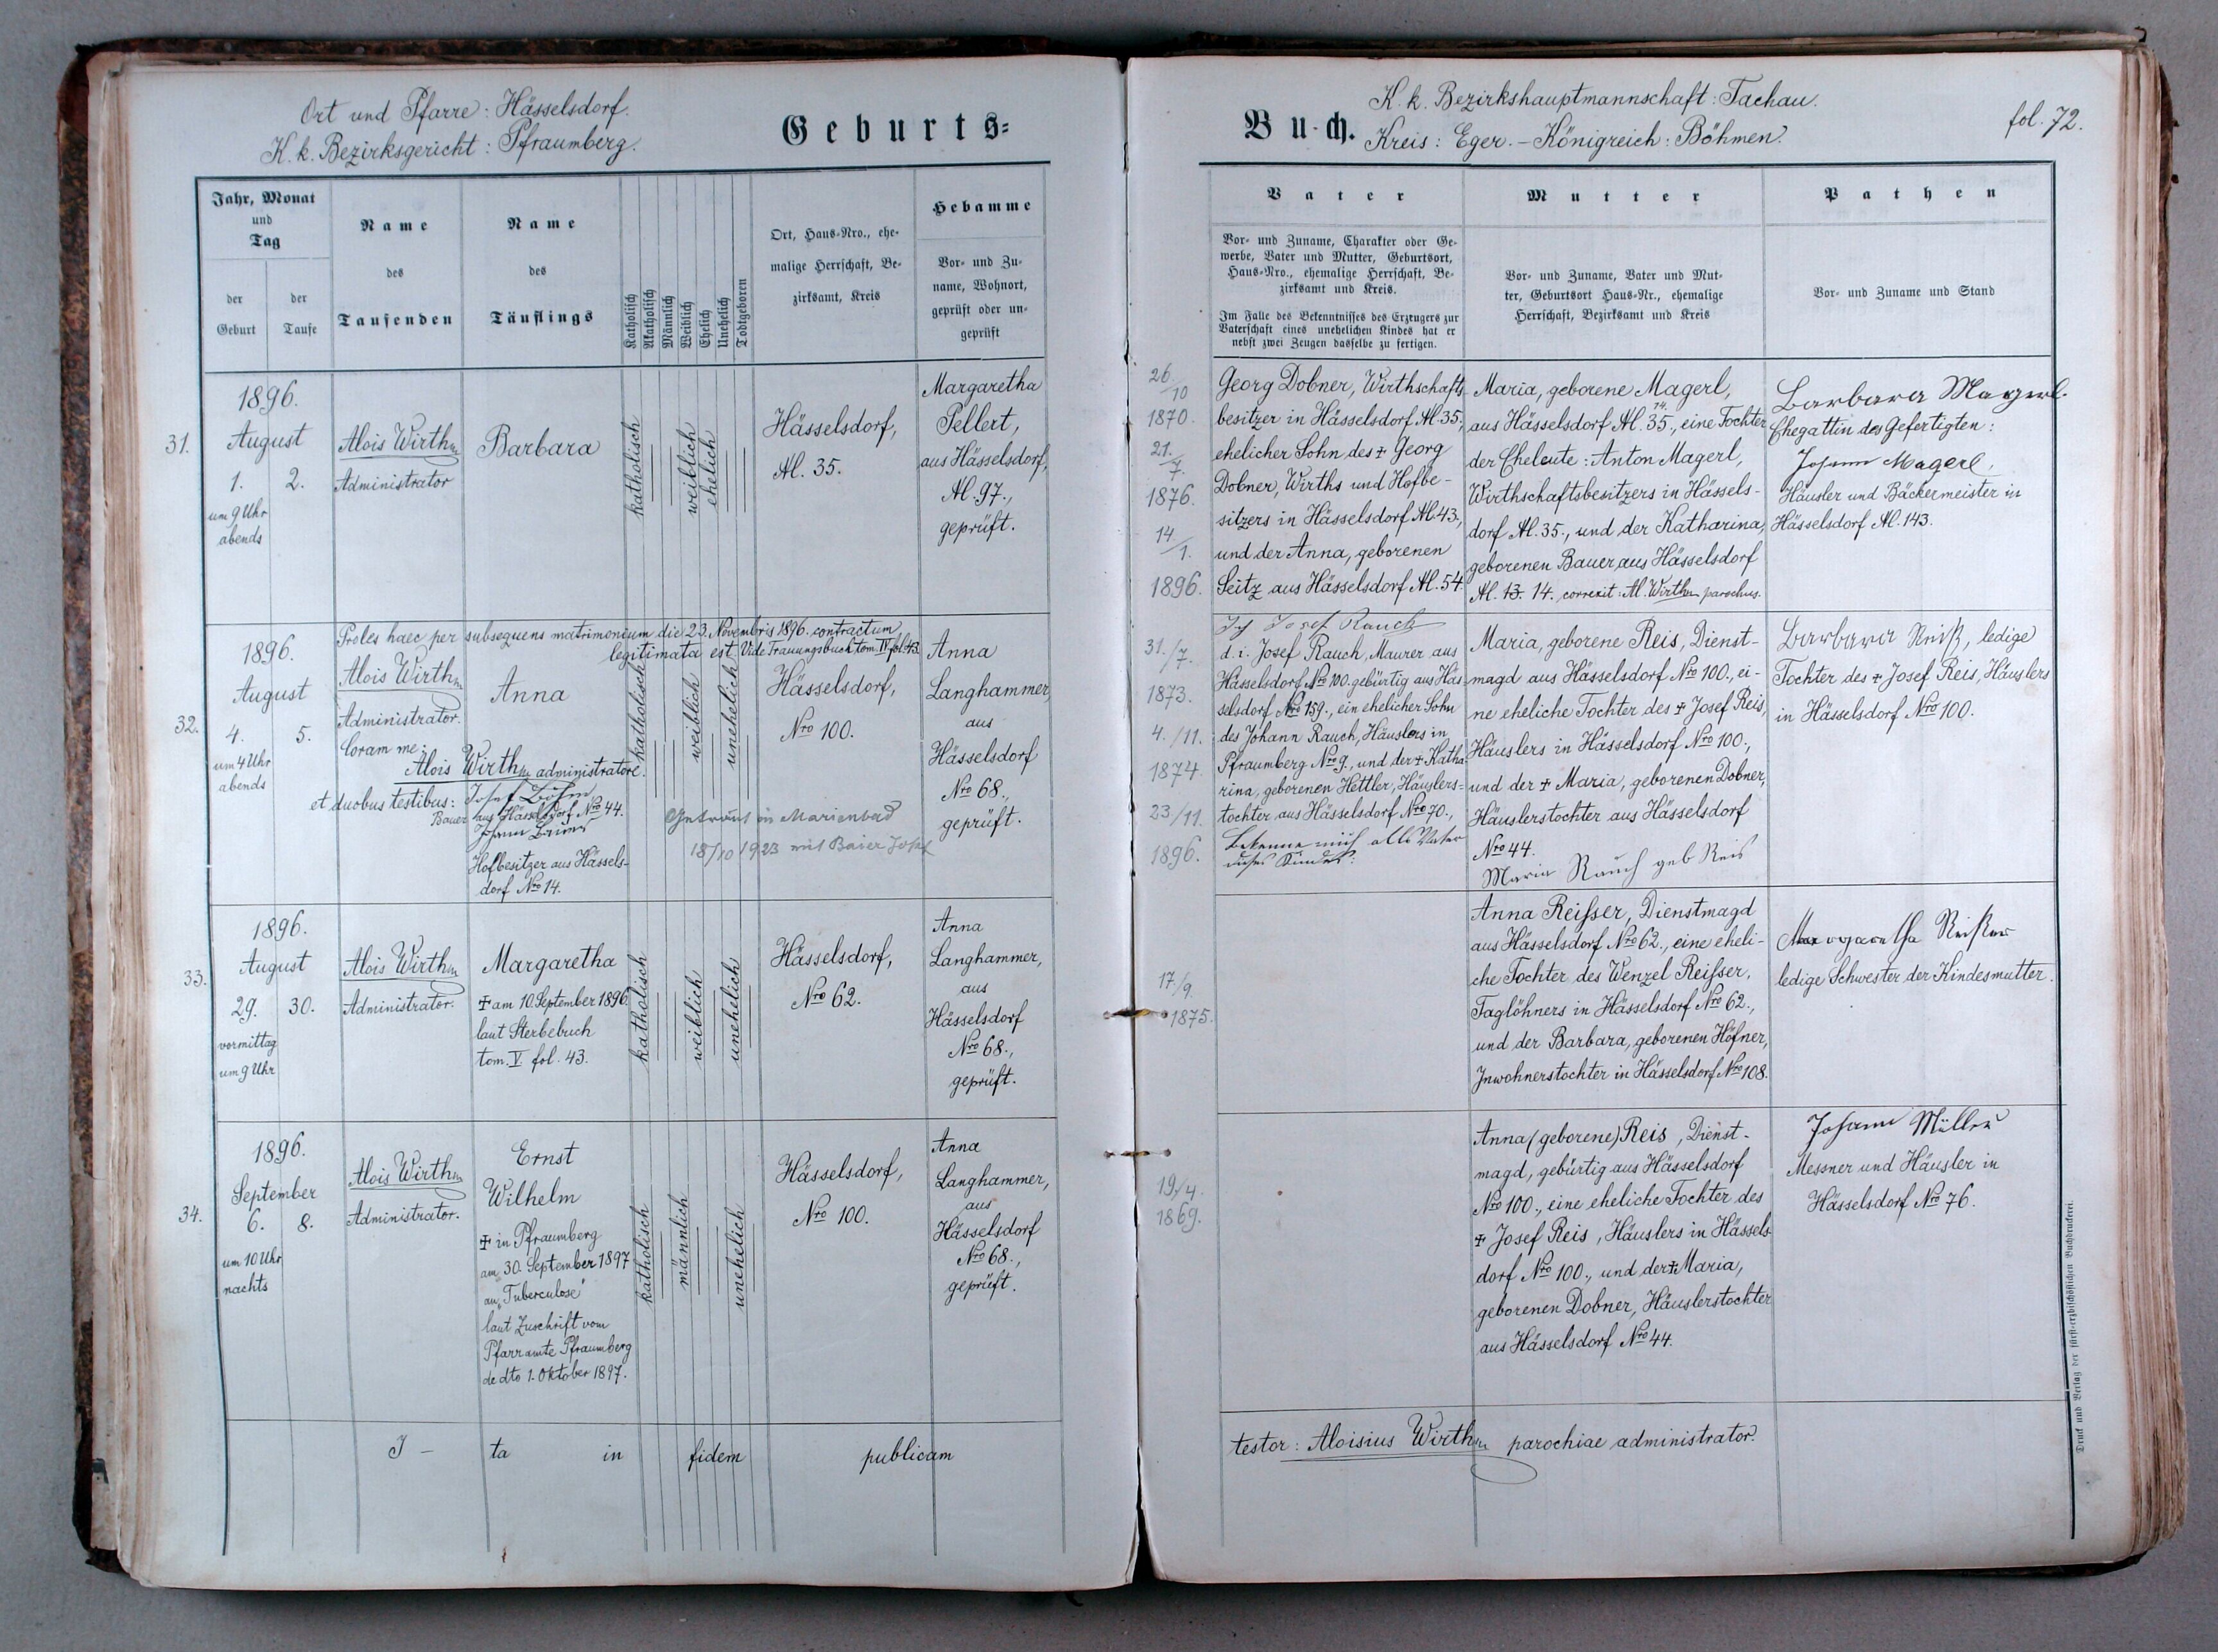 Ort und Pfarre: Hässelsdorf.
K. k. Bezirksgericht: Pfraumberg.
Geburts-
Jahr, Monat
und
Tag
der
Geburt
der
Taufe
Name
des
Taufenden
Name
des
Täuflings
Katholisch
Akatholisch
Männlich
Weiblich
Ehelich
Unehelich
Todtgeboren
Ort, Haus-Nro., ehe-
malige Herrschaft, Be-
zirksamt, Kreis
Hebamme
Vor- und Zu-
name, Wohnort,
geprüft oder un-
geprüft
31.
1896.
August
1. 2.
um 9 Uhr
abends
Alois Wirth
Administrator
Barbara
katholisch
weiblich
ehelich
Hässelsdorf,
Nl. 35.
Margaretha
Pellert,
aus Hässelsdorf,
Nl. 97.,
geprüft.
32.
Proles haec per subsequens matrimonium die 23. Novembris 1896. contractum
legitimata est. Vide Trauungsbuch tom. IV. fol. 43.
1896.
August
4. 5.
um 4 Uhr
abends
Alois Wirth
Administrator.
Coram me:
Alois Wirth administratore.
et duobus testibus: Josef Böhm
Bauer aus Hässelsdorf Nro 44.
Johann Bauer
Hofbesitzer aus Hässels-
dorf Nro 14.
Anna
katholisch
weiblich
unehelich
Getraut in Marienbad
18/10 1923 mit Baier Josef
Hässelsdorf,
Nro 100.
Anna
Langhammer,
aus
Hässelsdorf
Nro 68.,
geprüft.
33.
1896.
August
29. 30.
vormittag
um 9 Uhr
Alois Wirth
Administrator.
Margaretha
‡ am 10. September 1896.
laut Sterbebuch
tom. V. fol. 43.
katholisch
weiblich
unehelich
Hässelsdorf,
Nro 62.
Anna
Langhammer,
aus
Hässelsdorf
Nro 68.,
geprüft.
34.
1896.
September
6. 8.
um 10 Uhr
nachts
Alois Wirth
Administrator.
Ernst
Wilhelm
‡ in Pfraumberg
am 30. September 1897
an "Tuberculose"
laut Zuschrift vom
Pfarramte Pfraumberg
de dto 1. Oktober 1897.
katholisch
männlich
unehelich
Hässelsdorf,
Nro 100.
Anna
Langhammer,
aus
Hässelsdorf
Nro 68.,
geprüft.
I - ta in fidem publicam
Buch.
K. k. Bezirkshauptmannschaft: Tachau.
Kreis: Eger. - Königreich: Böhmen.
fol. 72.
Vater
Vor- und Zuname, Charakter oder Ge-
werbe, Vater und Mutter, Geburtsort,
Haus-Nro., ehemalige Herrschaft, Be-
zirksamt und Kreis.
Im Falle des Bekenntnisses des Erzeugers zur
Vaterschaft eines unehelichen Kindes hat er
nebst zwei Zeugen dasselbe zu fertigen.
Mutter
Vor- und Zuname, Vater und Mut-
ter, Geburtsort Haus-Nr., ehemalige
Herrschaft, Bezirksamt und Kreis
Pathen
Vor- und Zuname und Stand
26./10
1870.
21./7.
1876.
14/1.
1896.
Georg Dobner, Wirthschafts-
besitzer in Hässelsdorf Nl. 35.,
ehelicher Sohn des ‡ Georg
Dobner, Wirths und Hofbe-
sitzers in Hässelsdorf Nl. 43.,
und der Anna, geborenen
Seitz aus Hässelsdorf Nl. 54.
Maria, geborene Magerl,
14.
aus Hässelsdorf Nl. 35., eine Tochter
der Eheleute: Anton Magerl,
Wirthschaftsbesitzers in Hässels-
dorf Nl. 35., und der Katharina,
geborenen Bauer, aus Hässelsdorf
Nl. 13. 14., correxit: Al. Wirth parochus.
Barbara Magerl.
Ehegattin des Gefertigten:
Johann Magerl,
Häusler und Bäckermeister in
Hässelsdorf Nl. 143.
31./7.
1873.
4./11.
1874
23/11.
1896.
Ich Josef Rauch
d. i. Josef Rauch, Maurer aus
Hässelsdorf Nro 100. gebürtig aus Häs-
selsdorf Nro 159., ein ehelicher Sohn
des Johann Rauch, Häuslers in
Pfraumberg Nro 9., und der ‡ Katha-
rina, geborenen Hettler, Häuslers-
tochter aus Hässelsdorf Nro 70.,
Bekenne mich alls Vater
dieses Kindes:
Maria, geborene Reis, Dienst-
magd aus Hässelsdorf Nro 100., ei-
ne eheliche Tochter des ‡ Josef Reis,
Häuslers in Hässelsdorf Nro 100.,
und der ‡ Maria, geborenen Dobner,
Häuslerstochter aus Hässelsdorf
Nro 44.
Maria Rauch geb Reis
Barbara Reiß, ledige
Tochter des ‡ Josef Reis, Häuslers
in Hässelsdorf Nro 100.
17/9.
1875.
Anna Reisser, Dienstmagd
aus Hässelsdorf Nro 62., eine eheli-
che Tochter des Wenzel Reisser,
Taglöhners in Hässelsdorf Nro 62.,
und der Barbara, geborenen Höfner,
Inwohnerstochter in Hässelsdorf Nro 108.
Margaretha Reißer
ledige Schwester der Kindesmutter.
19/4.
1869.
Anna (geborene) Reis, Dienst-
magd, gebürtig aus Hässelsdorf
Nro 100., eine eheliche Tochter des
‡ Josef Reis, Häuslers in Hässels-
dorf Nro 100., und der ‡ Maria,
geborenen Dobner, Häuslerstochter
aus Hässelsdorf Nro 44.
Johann Müller
Messner und Häusler in
Hässelsdorf Nro 76.
testor: Aloisius Wirth parochiae administrator.
Druck und Verlag der fürst-erzbischöflichen Buchdruckerei.